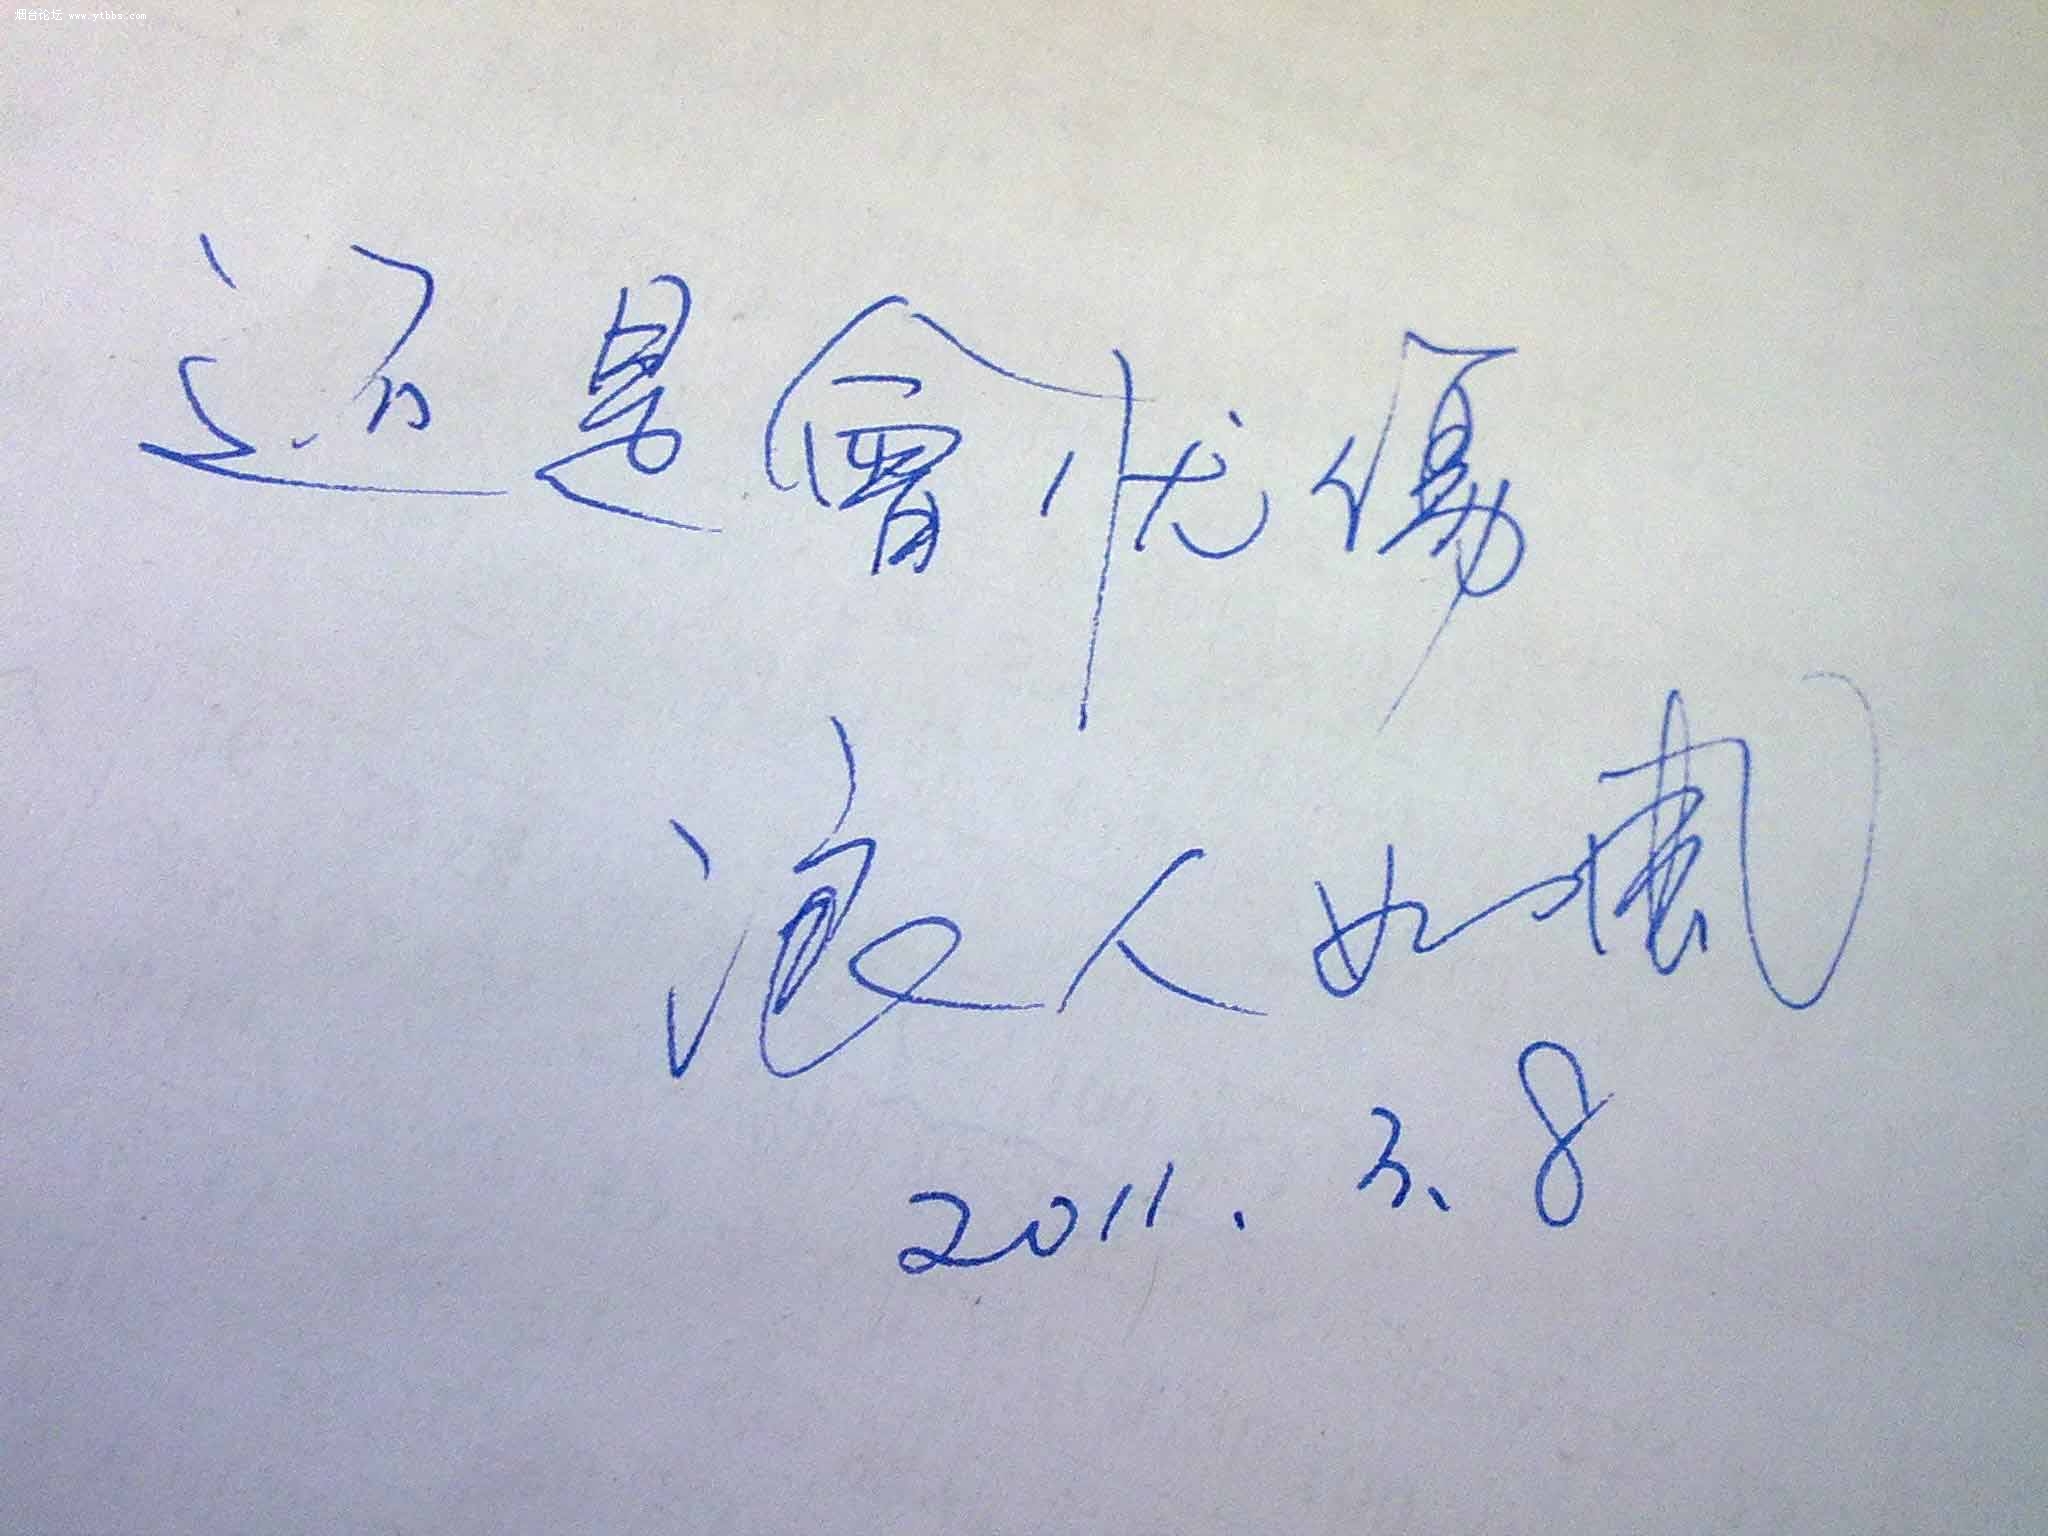 烟台论坛 www.ytbbs.com
还是會忧傷
浪人如風
2011.3.8